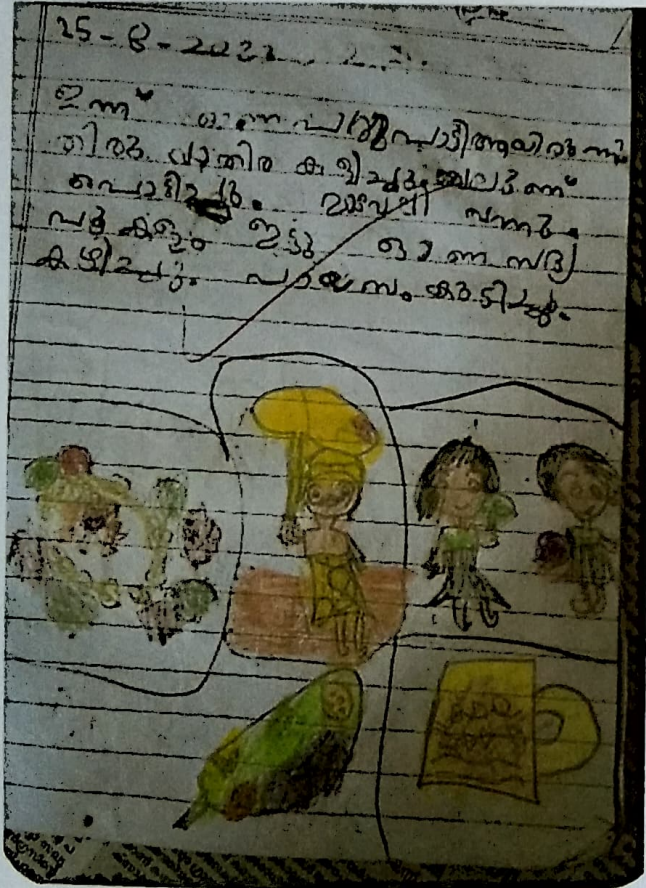 25-8-2023
ഇന്ന് ഓണപരുപാടിആയിരുന്നു
തിരുവാതിര കളിച്ചു.ബലൂണ്
പൊട്ടിച്ചു. മാവേലി വന്നു.
പൂകളം ഇട്ടു ഓണസദ്യ
കഴിച്ചു. പായസം കുടിച്ചു.